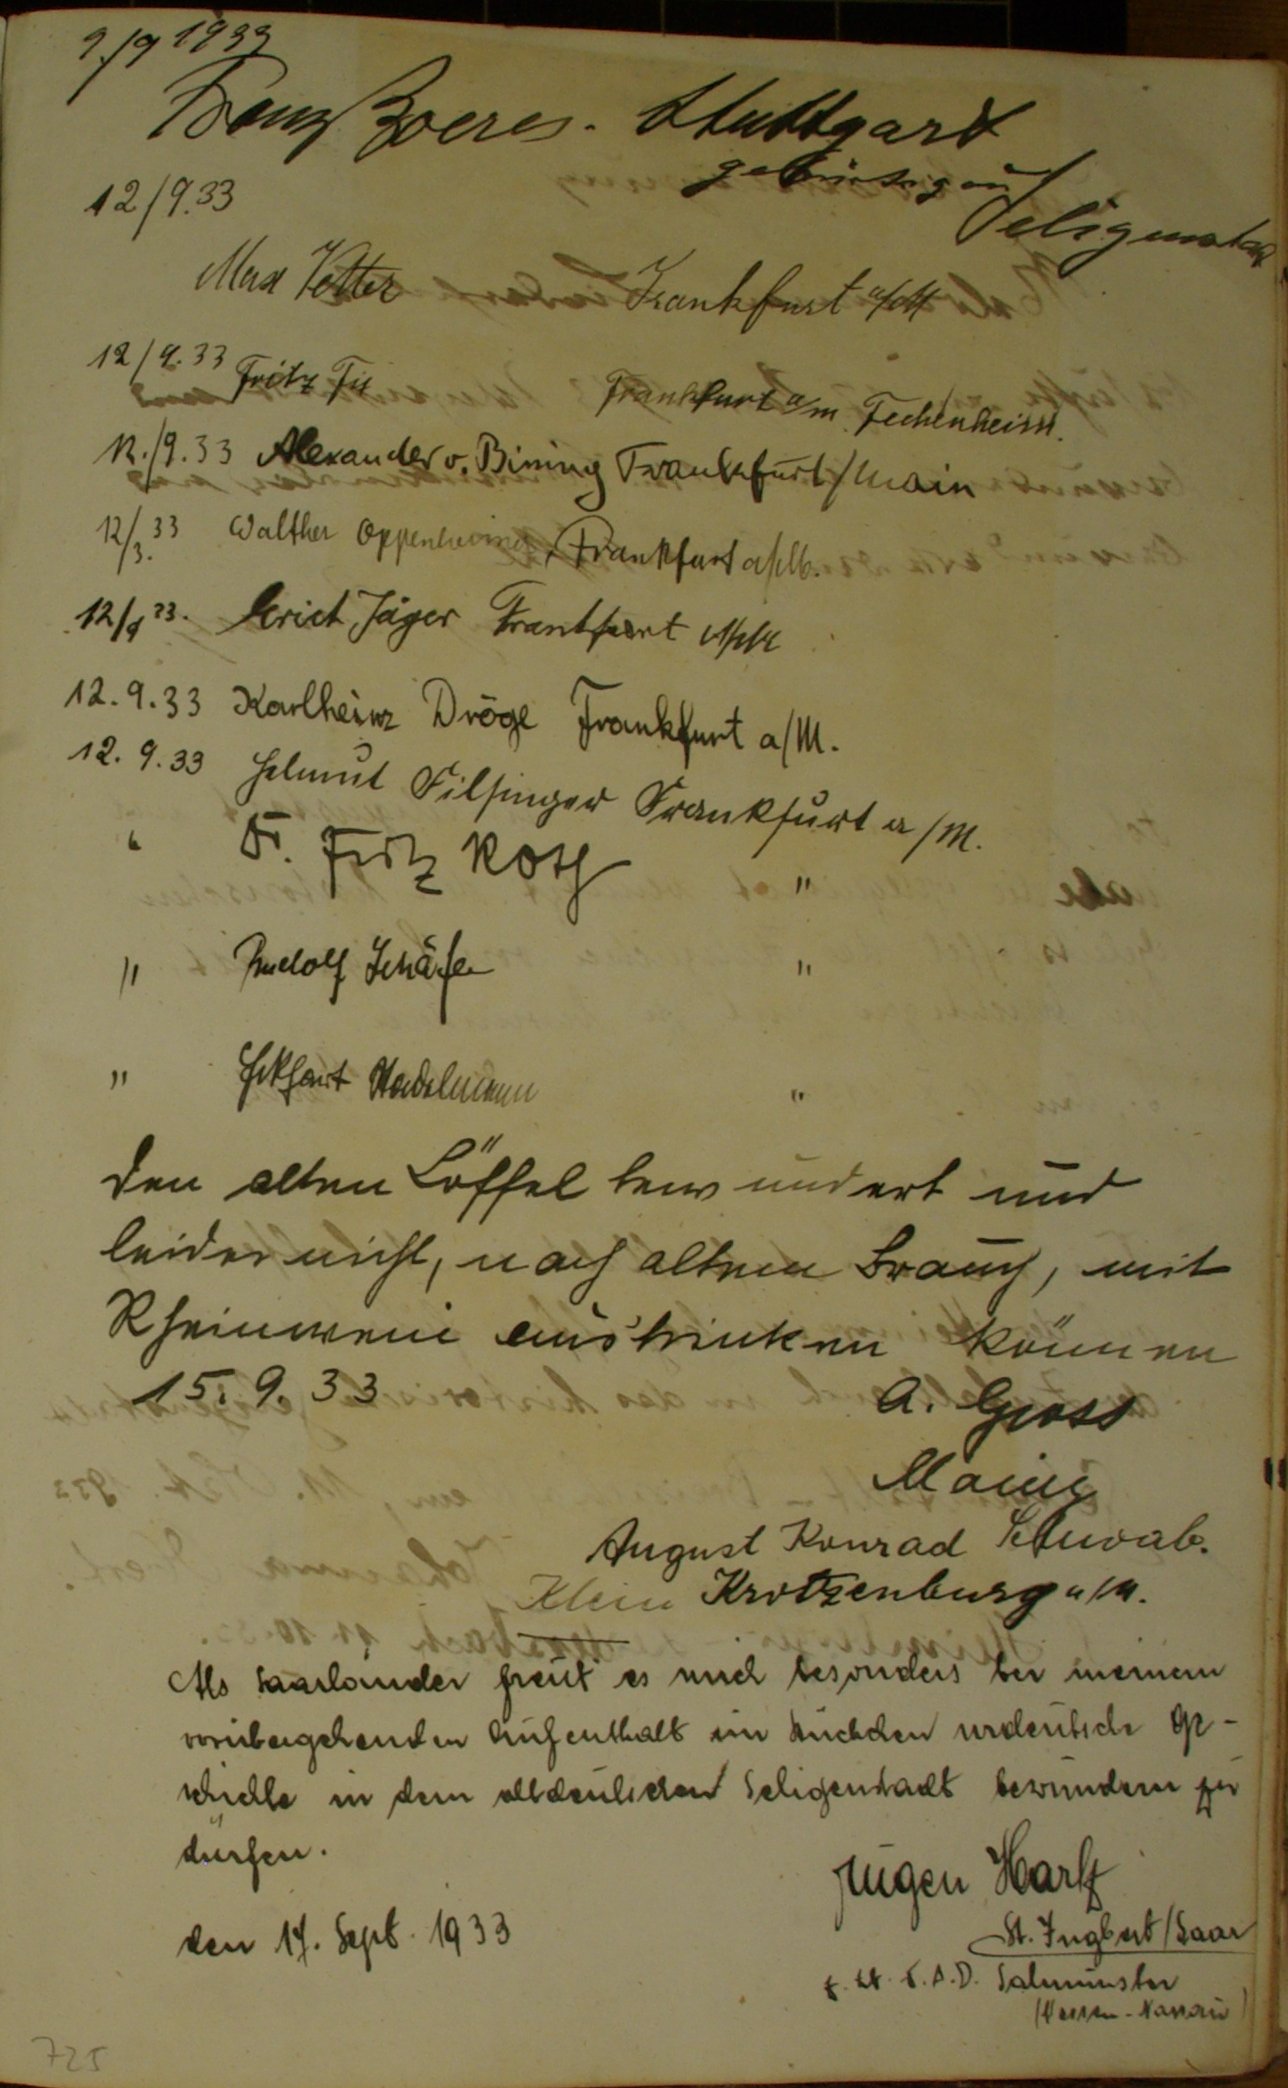 9/9 1933
Franz Boeres. Stuttgart
gebürtig aus Seligenstadt
12/9.33
Max Vetter Frankfurt a/M
12/9.33 Fritz Frankfurt a/m. Fechenheim.
12./9.33 Alexander v. Bining Frankfurt/Main
12/9.33 Walther Oppenheimer, Frankfurt a/M.
12/9 33. Erich Jäger Frankfurt a/M
12.9.33 Karlheinz Dröge Frankfurt a/M.
12.9.33 Helmut Filsinger Frankfurt a/M.
" Dr. Fritz Roth "
" Rudolf Schäfer "
" Ekhart Stadelmann "
Den alten Löffel bewundert und
leider nicht, nach altem Brauch, mit
Rheinwein austrinken können
15.9.33 A. Gross
Mainz
August Konrad Schwab.
Klein Krotzenburg a/M.
Als Saarländer freut es mich besonders bei meinem
vorübergehenden Aufenthalt im urdeutsche Ge-
schichte in dem altdeutschen Seligenstadt bewundern zu
dürfen.
Eugen Hartz
den 17. Sept. 1933
St. Ingbert/Saar
z. Zt. F.A.D. Salmünster
(Hessen-Nassau)
725